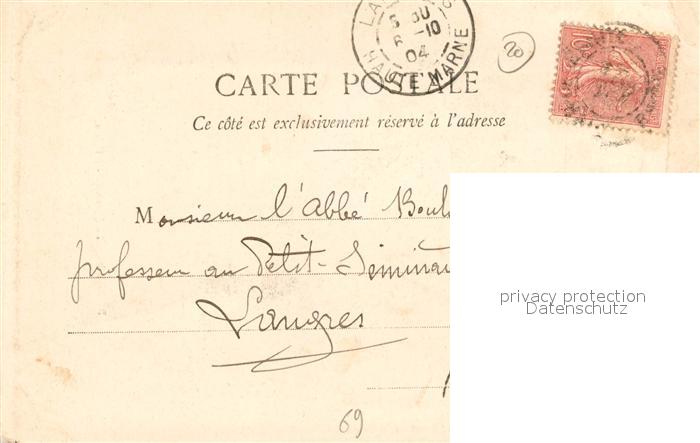 HAUTE MARNE
04
20
10
CARTE POSTALE
Ce côté est exclusivement réservé à l'adresse
Monsieur l'Abbé Boul
professeur au Petit-Séminai
Langres
privacy protection
Datenschutz
69